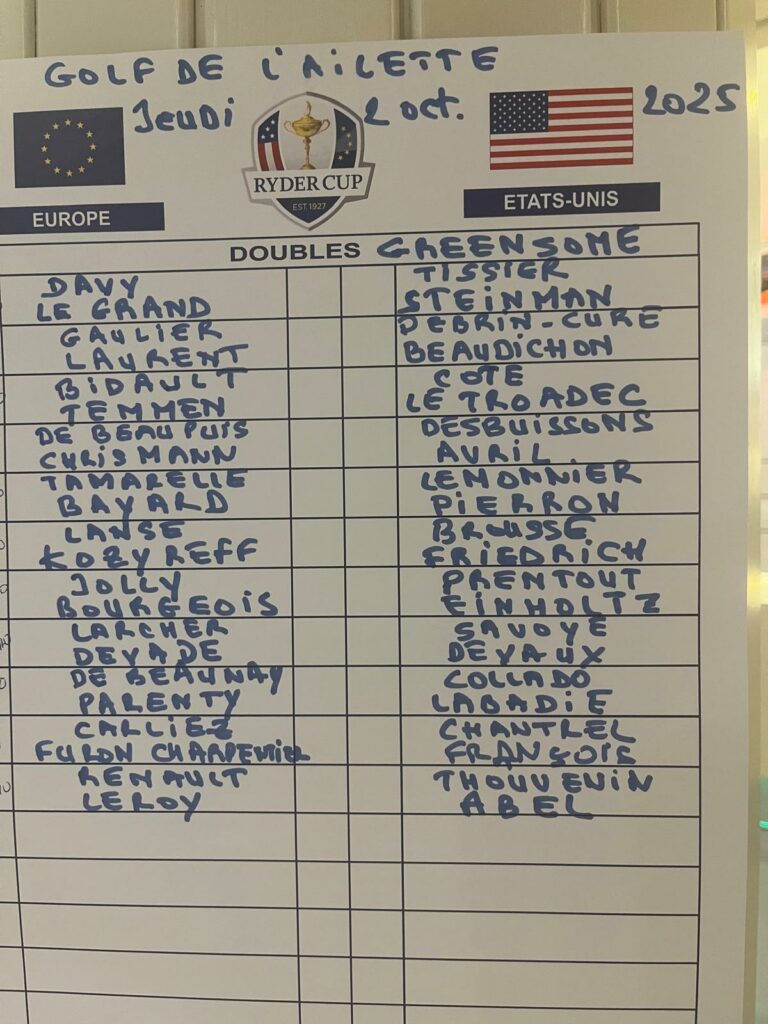 GOLF DE L'AILETTE
Jeudi 2 oct. 2025
RYDER CUP
EST. 1927
EUROPE
ETATS-UNIS
DOUBLES GREENSOME
DAVY
LE GRAND
TISSIER
STEINMAN
GAULIER
LAURENT
DEBRIN-CURE
BEAUDICHON
BIDAULT
TEMMEN
COTE
LE TROADEC
DE BEAUPUIS
CHRISMANN
DESBUISSONS
AVRIL
TAMARELLE
BAYARD
LEMONNIER
PIERRON
LANSE
KOZYREFF
BROUSSE
FRIEDRICH
JOLLY
BOURGEOIS
PRENTOUT
EINHOLTZ
LARCHER
DEVADE
SAVOYE
DEVAUX
DE BEAUNAY
PARENTY
COLLADO
LABADIE
CARLIEZ
FURON CHARPENTIER
CHANTREL
FRANÇOIS
RENAULT
LEROY
THOUVENIN
ABEL